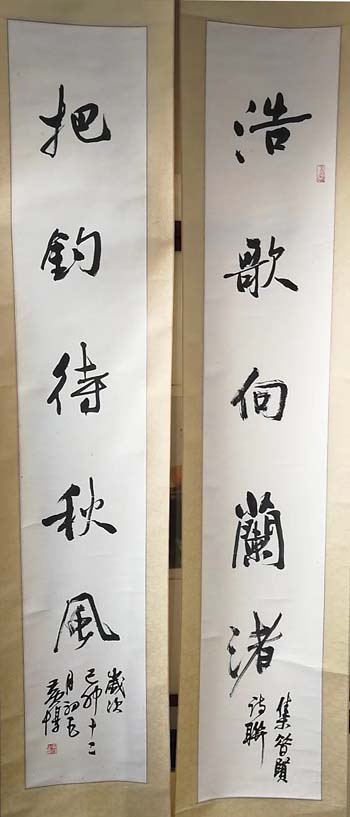 浩歌向蘭渚
集晉賢
詩聯
把釣待秋風
歲次
己卯十二
月初五
黃惇